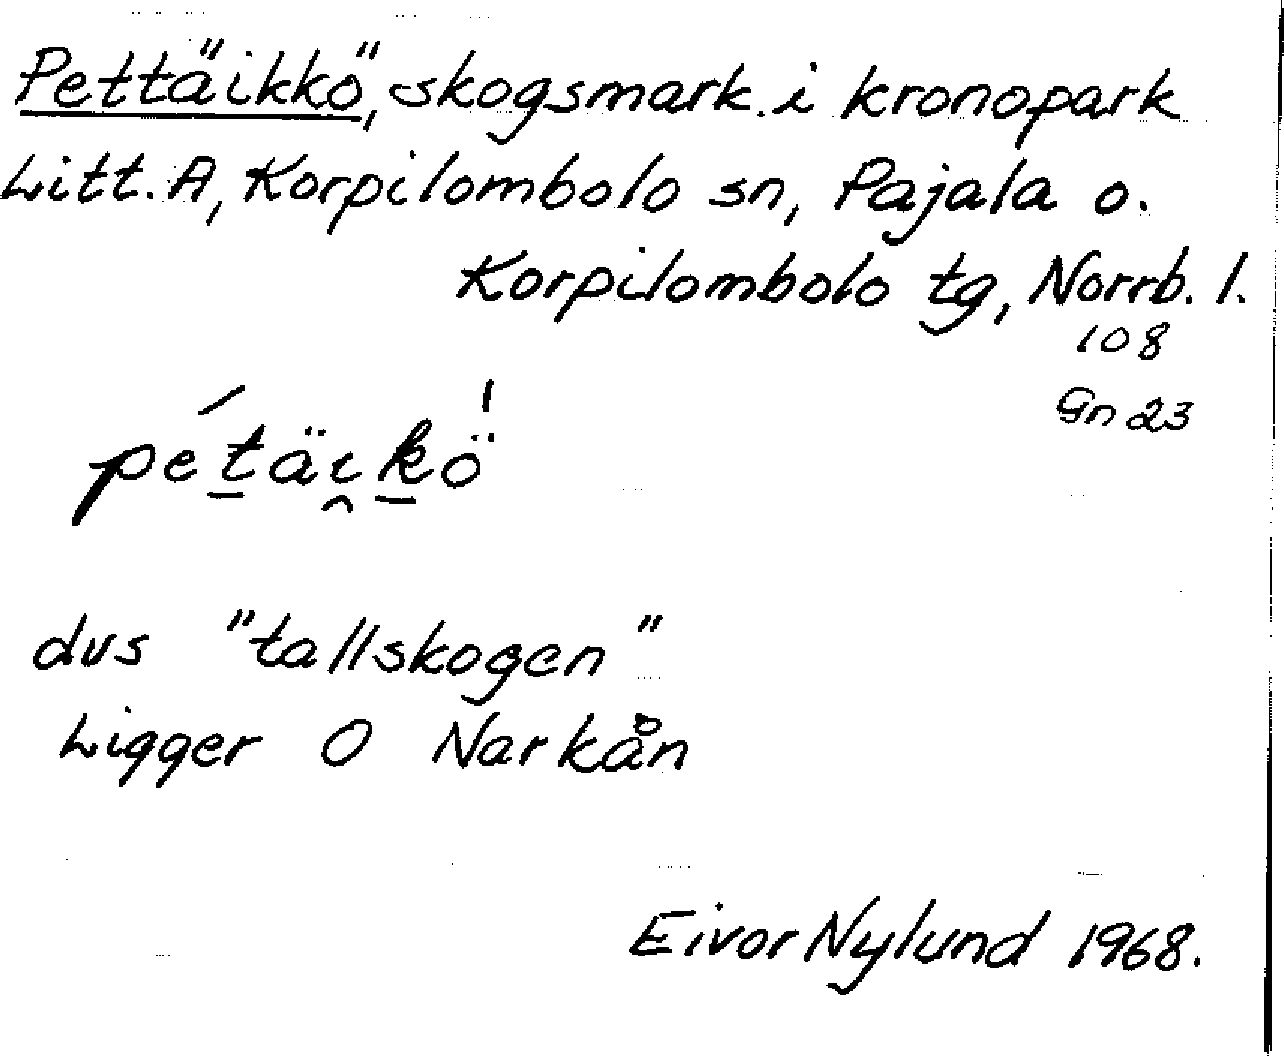 Pettäikkö, skogsmark i kronopark
Litt. A, Korpilombolo sn, Pajala o.
Korpilombolo tg, Norrb. l.
108
Gn 23
pét̲äi̯k̲ö̍
dvs "tallskogen"
Ligger O Narkån
Eivor Nylund 1968.